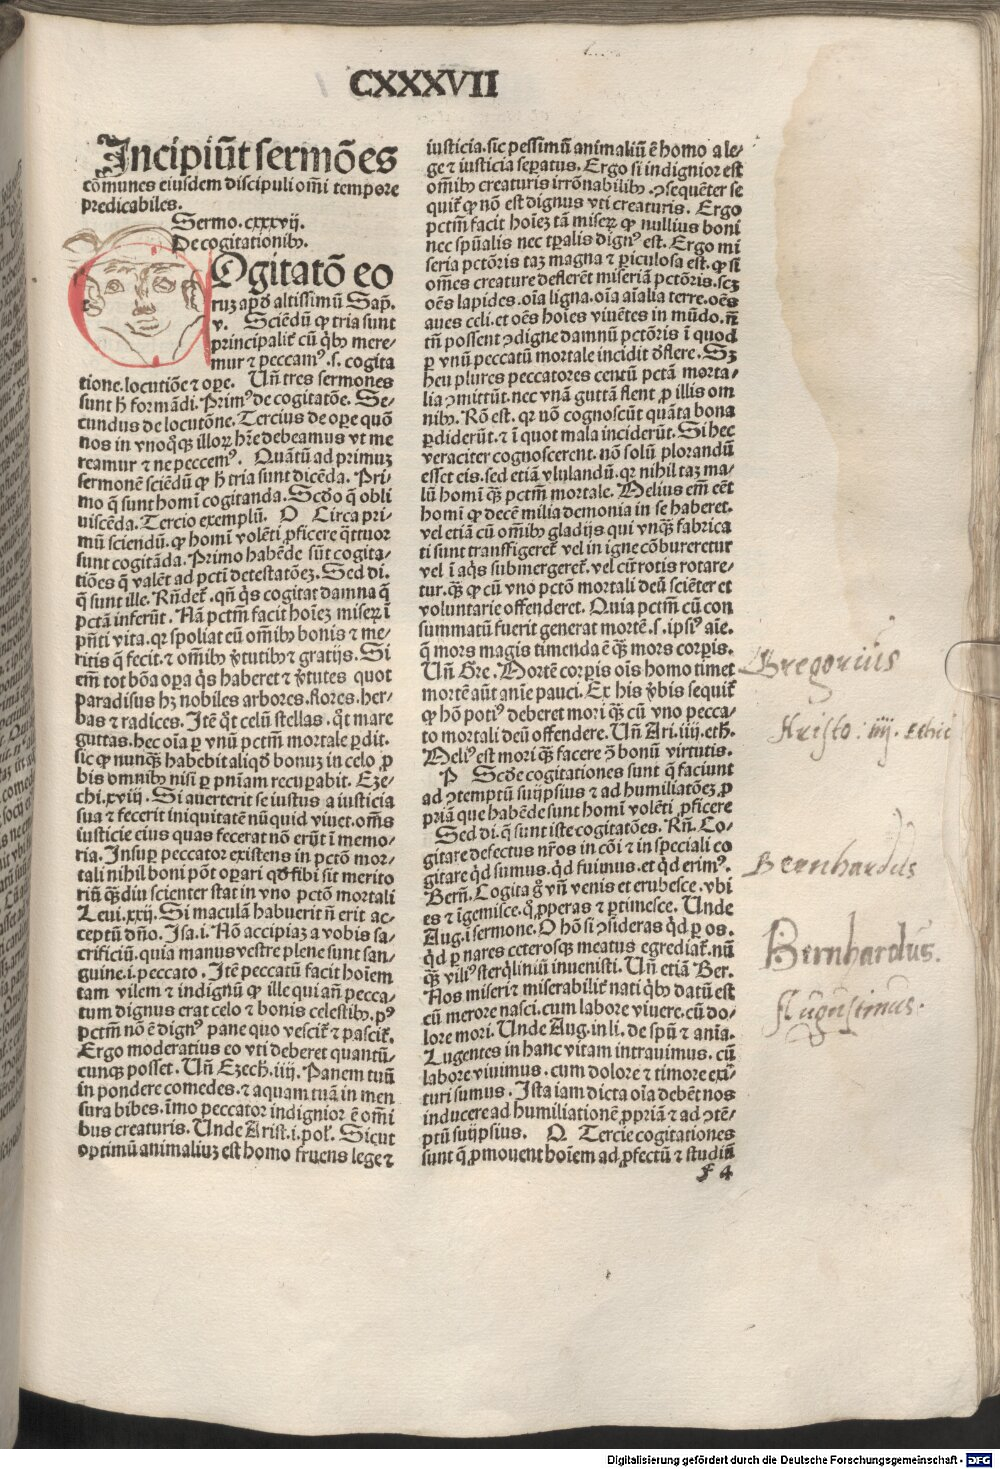 CXXXVII
Incipiūt sermōes
cōmunes eiusdem discipuli om̄i tempore
predicabiles.
Sermo.cxxxvij.
De cogitationibꝯ.
Ogitatō eo
rum apđ altissimū Sap̄.
v. Sciēdū ꝙ tria sunt
principalit̄ cū q̄bꝯ mere⸗
mur ⁊ peccamꝰ.s.cogita
tione.locutiōe ⁊ oꝑe. Uñ tres sermones
sunt h̄ formādi. Primꝰ de cogitatōe. Se⸗
cundus de locutōne. Tercius de oꝑe quō
nos in vnoq̄ꝫ illoꝝ hr̄e debeamus vt me
reamur ⁊ ne peccemꝰ. Quātū ad primuꝫ
sermonē sciēdū ꝙ h̄ tria sunt dicēda. Pri⸗
mo q̄ sunt homī cogitanda. Scđo q̄ obli
uiscēda. Tercio exemplū. O Circa pri⸗
mū sciendū.ꝙ homī volēti ꝓficere q̄ttuor
sunt cogitāda. Primo habēde sūt cogita⸗
tiōes q̄ valēt ad pctī detestatōeꝫ. Sed di.
q̄ sunt ille. Rn̄deꝉ.qn̄ q̄s cogitat damna q̄
pctā inferūt. Nā pctm̄ facit hoīeꝫ miseꝝ ī
pn̄ti vita.qꝛ spoliat eū om̄ibꝯ bonis ⁊ me⸗
ritis q̄ fecit.⁊ om̄ibꝯ v̓tutibꝯ ⁊ gratijs. Si
em̄ tot bōa oꝑa q̄s haberet ⁊ v̓tutes quot
paradisus hꝫ nobiles arbores.flores.her⸗
bas ⁊ radices. Itē q̄t celū stellas.q̄t mare
guttas.hec oīa ꝑ vnū pctm̄ mortale ꝑdit.
sic ꝙ nunq̄ꝫ habebit aliqđ bonuꝫ in celo ꝓ
bis omnibꝯ nisi ꝑ pn̄iam recuꝑabit. Eze⸗
chi.xviij. Si auerterit se iustus a iusticia
sua ⁊ fecerit iniquitatē nūquid viuet.om̄s
iusticie eius quas fecerat nō erūt ī memo⸗
ria. Insuꝑ peccator existens in pctō mor⸗
tali nihil boni pōt oꝑari qđ sibi sit merito
riū q̄ꝫdiu scienter stat in vno pctō mortali
Leui.xxij. Si maculā habuerit n̄ erit ac⸗
ceptū dn̄o. Isa.i. Nō accipiaꝫ a vobis sa⸗
crificiū.quia manus vestre plene sunt san⸗
guine.i.peccato. Itē peccatū facit hoīem
tam vilem ⁊ indignū ꝙ ille qui an̄ pecca⸗
tum dignus erat celo ⁊ bonis celestibꝯ.pꝰ
pctm̄ nō ē dignꝰ pane quo vesciꝉ ⁊ pasciꝉ.
Ergo moderatius eo vti deberet quantū⸗
cunqꝫ posset. Uñ Ezech̄.iiij. Panem tuū
in pondere comedes.⁊ aquam tuā in men
sura bibes.īmo peccator indignior ē om̄i
bus creaturis. Unde Arist.i.pol̓. Sicut
optimū animaliuꝫ est homo fruens lege ⁊
iusticia.sic pessimū animaliū ē homo a le⸗
ge ⁊ iusticia seꝑatus. Ergo si indignior est
om̄ibꝯ creaturis irrōnabilibꝯ.ↄsequēter se
quiꝉ ꝙ nō est dignus vti creaturis. Ergo
pctm̄ facit hoīeꝫ tā miseꝝ ꝙ nullius boni
nec spūalis nec tꝑalis dignꝰ est. Ergo mi
seria pctōris taꝫ magna ⁊ ꝑiculosa est.ꝙ si
om̄es creature deflerēt miseriā pctōris.scꝫ
oēs lapides.oīa ligna.oīa aīalia terre.oēs
aues celi.et oēs hoīes viuētes in mūdo.n̄
tn̄ possent ↄdigne damnū pctōris ī quod
ꝑ vnū peccatū mortale incidit deflere. Sꝫ
heu plures peccatores centū pctā morta⸗
lia ↄmittūt.nec vnā guttā flent ꝓ illis om
nibꝯ. Rō est.qꝛ nō cognoscūt quāta bona
ꝑdiderūt.⁊ ī quot mala inciderūt. Si hec
veraciter cognoscerent.nō solū plorandū
esset eis.sed etiā vlulandū.qꝛ nihil taꝫ ma⸗
lū homī q̄ꝫ pctm̄ mortale. Melius em̄ eēt
homī ꝙ decē milia demonia in se haberet.
vel etiā cū om̄ibꝯ gladijs qui vnq̄ꝫ fabrica
ti sunt transfigereꝉ.vel in igne cōbureretur
vel ī aq̄s submergereꝉ.vel cū rotis rotare⸗
tur.q̄ꝫ ꝙ cū vno pctō mortali deū sciēter et
voluntarie offenderet. Quia pctm̄ cū con
summatū fuerit generat mortē.s.ipsiꝰ aīe.
q̄ mors magis timenda ē q̄ꝫ mors corꝑis.
Uñ Gre. Mortē corꝑis oīs homo timet
mortē aūt anīe pauci. Ex his v̓bis sequiꝉ
ꝙ hō potiꝰ deberet mori q̄ꝫ cū vno pecca⸗
to mortali deū offendere. Uñ Ari.iiij.eth̄.
Meliꝰ est mori q̄ꝫ facere ꝯ̄ bonū virtutis.
P Scđe cogitationes sunt q̄ faciunt
ad ↄtemptū suijpsius ⁊ ad humiliatōeꝫ ꝓ
priā que habēde sunt homī volēti ꝓficere
Sed di.q̄ sunt iste cogitatōes. Rn̄. Co⸗
gitare defectus nr̄os in cōi ⁊ in speciali co
gitare q̄d sumus.q̄d fuimus.et q̄d erimꝰ.
Bern̄. Cogita g̊ vn̄ venis et erubesce.vbi
es ⁊ īgemisce.q̊ ꝓperas ⁊ ꝑtimesce. Unde
Aug.i sermone. O hō si ↄsideras q̄d ꝑ os.
q̄d ꝑ nares ceterosqꝫ meatus egrediaꝉ.nū
q̄ꝫ viliꝰ sterq̄liniū inuenisti. Uñ etiā Ber.
Nos miseri ⁊ miserabiles nati q̄bꝯ datū est
cū merore nasci.cum labore viuere.cū do⸗
lore mori. Unde Aug.in li.de spū ⁊ anīa.
Lugentes in hanc vitam intrauimus.cū
labore viuimus.cum dolore ⁊ timore exi⸗
turi sumus. Ista iam dicta oīa debēt nos
inducere ad humiliationē ꝓpriā ⁊ ad ↄtē⸗
ptū suijpsius. Q Tercie cogitationes
sunt q̄ ꝓmouent hoīem ad ꝓfectū ⁊ studiū
f 4
Gregorius
Aristo: iiij. Ethic
Bernhardus
Bernhardus.
Augustinus.
Digitalisierung gefördert durch die Deutsche Forschungsgemeinschaft - DFG